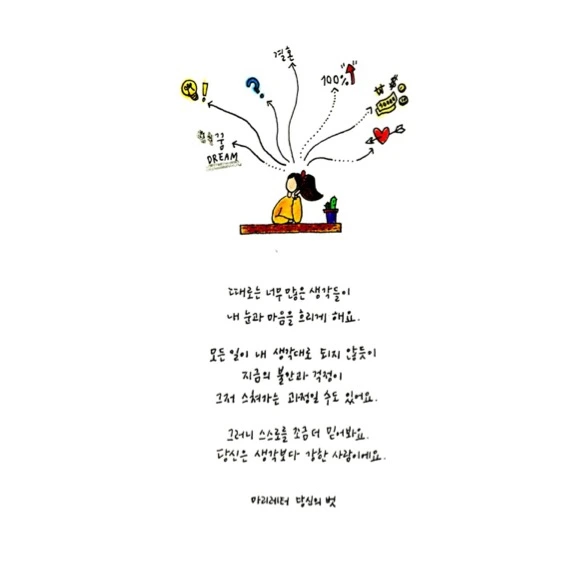 결혼
100%
꿈
DREAM
때로는 너무 많은 생각들이
내 눈과 마음을 흐리게 해요.
모든 일이 내 생각대로 되지 않듯이
지금의 불안과 걱정이
그저 스쳐가는 과정일 수도 있어요.
그러니 스스로를 조금 더 믿어봐요.
당신은 생각보다 강한 사람이에요.
마리레터 당신의 벗